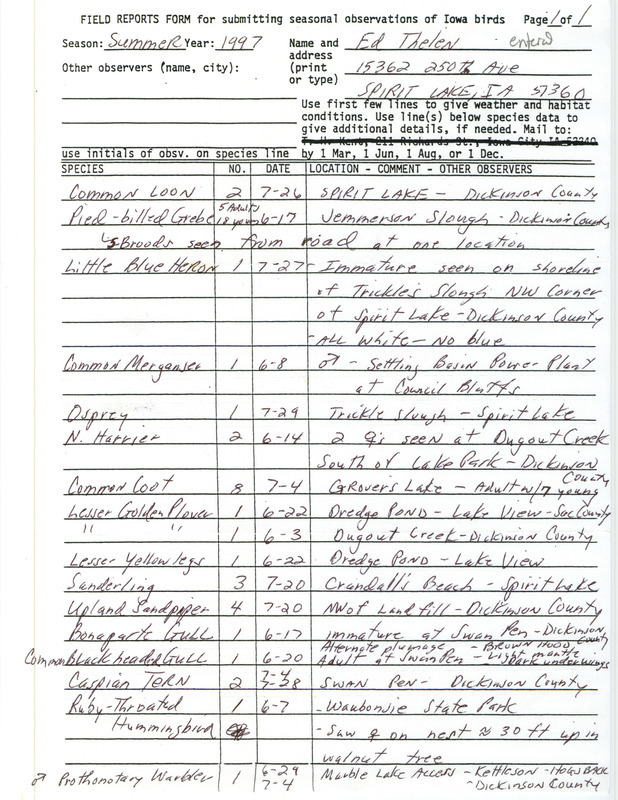 FIELD REPORTS FORM for submitting seasonal observations of Iowa birds Page 1 of 1
Season: Summer Year: 1997 Name and address (print or type) Ed Thelen entered
Other observers (name, city): 15362 250th Ave
SPIRIT LAKE, IA 51360
Use first few lines to give weather and habitat
conditions. Use line(s) below species data to
give additional details, if needed. Mail to:
T. H. Kent, 211 Richards St., Iowa City IA 52240
use initials of obsv. on species line by 1 Mar, 1 Jun, 1 Aug, or 1 Dec.
SPECIES NO. DATE LOCATION - COMMENT - OTHER OBSERVERS
Common Loon 2 7-26 SPIRIT LAKE - Dickinson County
Pied-billed Grebe 5 Adults 18 young 6-17 Jemmerson Slough - Dickinson County
5 Broods seen from road at one location
Little Blue Heron 1 7-27 - Immature seen on shoreline
of Trickle's Slough NW Corner
of Spirit Lake - Dickinson County
- ALL white - No blue
Common Merganser 1 6-8 ♂ - Settling Basin Power Plant
at Council Bluffs
Osprey 1 7-29 Trickle Slough - Spirit Lake
N. Harrier 2 6-14 2 ♀'s seen at Dugout Creek
South of Lake Park - Dickinson County
Common Coot 8 7-4 Grovers Lake - Adult w/7 young
Lesser Golden Plover 1 6-22 Dredge POND - Lake View - Sac County
" " 1 6-3 Dugout Creek - Dickinson County
Lesser Yellowlegs 1 6-22 Dredge POND - Lake View
Sanderling 3 7-20 Crandall's Beach - Spirit Lake
Upland Sandpiper 4 7-20 NW of Landfill - Dickinson County
Bonaparte GULL 1 6-17 immature at Swan Pen - Dickinson County
Alternate plumage - BROWN HOOD
Common Blackheaded GULL 6-20 Adult at Swan Pen - Light mantle
Dark underwings
Caspian TERN 2 7-4 7-28 SWAN PEN - Dickinson County
Ruby-Throated 1 6-7 - Waubonsie State Park
Hummingbird - Saw ♀ on nest ≈ 30 ft up in
walnut tree
♂ Prothonotary Warbler 1 6-29 7-4 Marble Lake Access - Kettleson - HOGSBACK
- Dickinson County